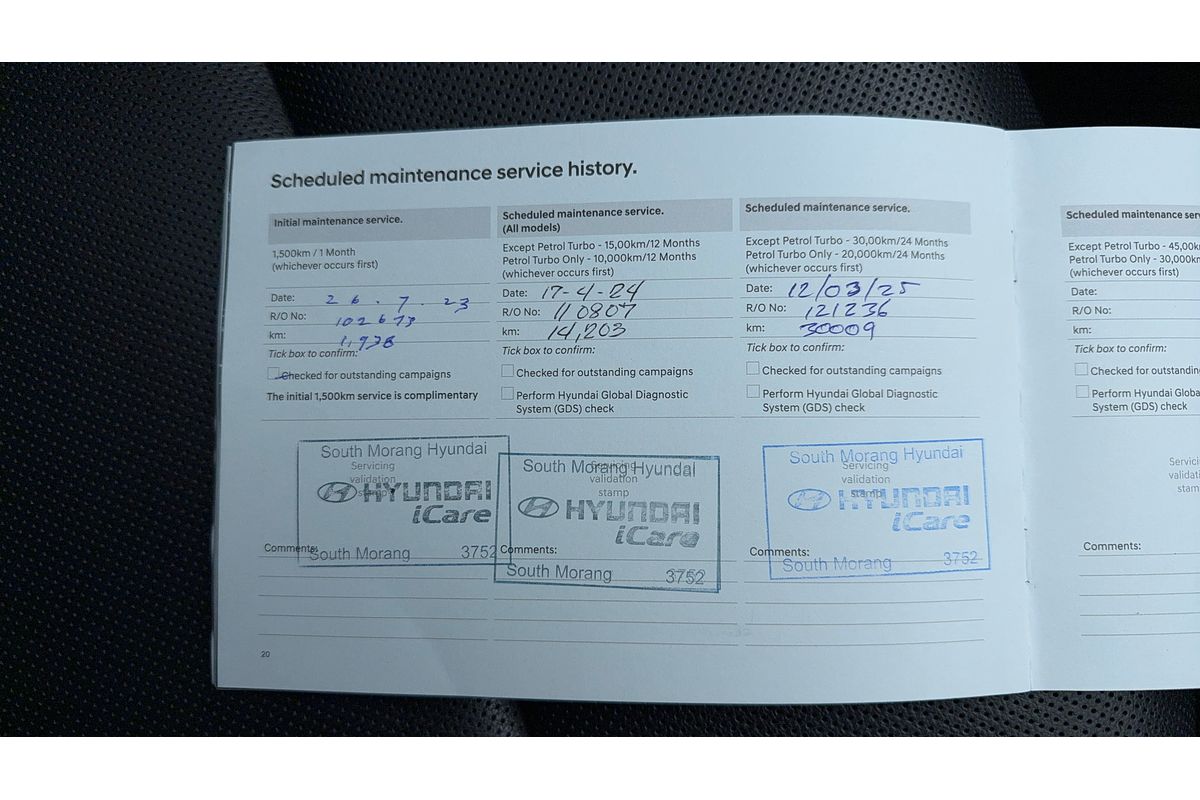 Scheduled maintenance service history.
Initial maintenance service.
1,500km / 1 Month
(whichever occurs first)
Date: 26.7.23
R/O No: 102673
km: 1,938
Tick box to confirm:
Checked for outstanding campaigns
The initial 1,500km service is complimentary
South Morang Hyundai
Servicing
validation
stamp
HYUNDAI
iCare
Comments:
South Morang 3752
Scheduled maintenance service.
(All models)
Except Petrol Turbo - 15,00km/12 Months
Petrol Turbo Only - 10,000km/12 Months
(whichever occurs first)
Date: 17-4-24
R/O No: 110807
km: 14,203
Tick box to confirm:
Checked for outstanding campaigns
Perform Hyundai Global Diagnostic
System (GDS) check
South Morang Hyundai
Servicing
validation
stamp
HYUNDAI
iCare
Comments:
South Morang 3752
Scheduled maintenance service.
Except Petrol Turbo - 30,00km/24 Months
Petrol Turbo Only - 20,000km/24 Months
(whichever occurs first)
Date: 12/03/25
R/O No: 121236
km: 30009
Tick box to confirm:
Checked for outstanding campaigns
Perform Hyundai Global Diagnostic
System (GDS) check
South Morang Hyundai
Servicing
validation
stamp
HYUNDAI
iCare
Comments:
South Morang 3752
20
Scheduled maintenance ser
Except Petrol Turbo - 45,00k
Petrol Turbo Only - 30,000km
(whichever occurs first)
Date:
R/O No:
km:
Tick box to confirm:
Checked for outstanding
Perform Hyundai Global
System (GDS) check
Servicing
validati
stam
Comments: